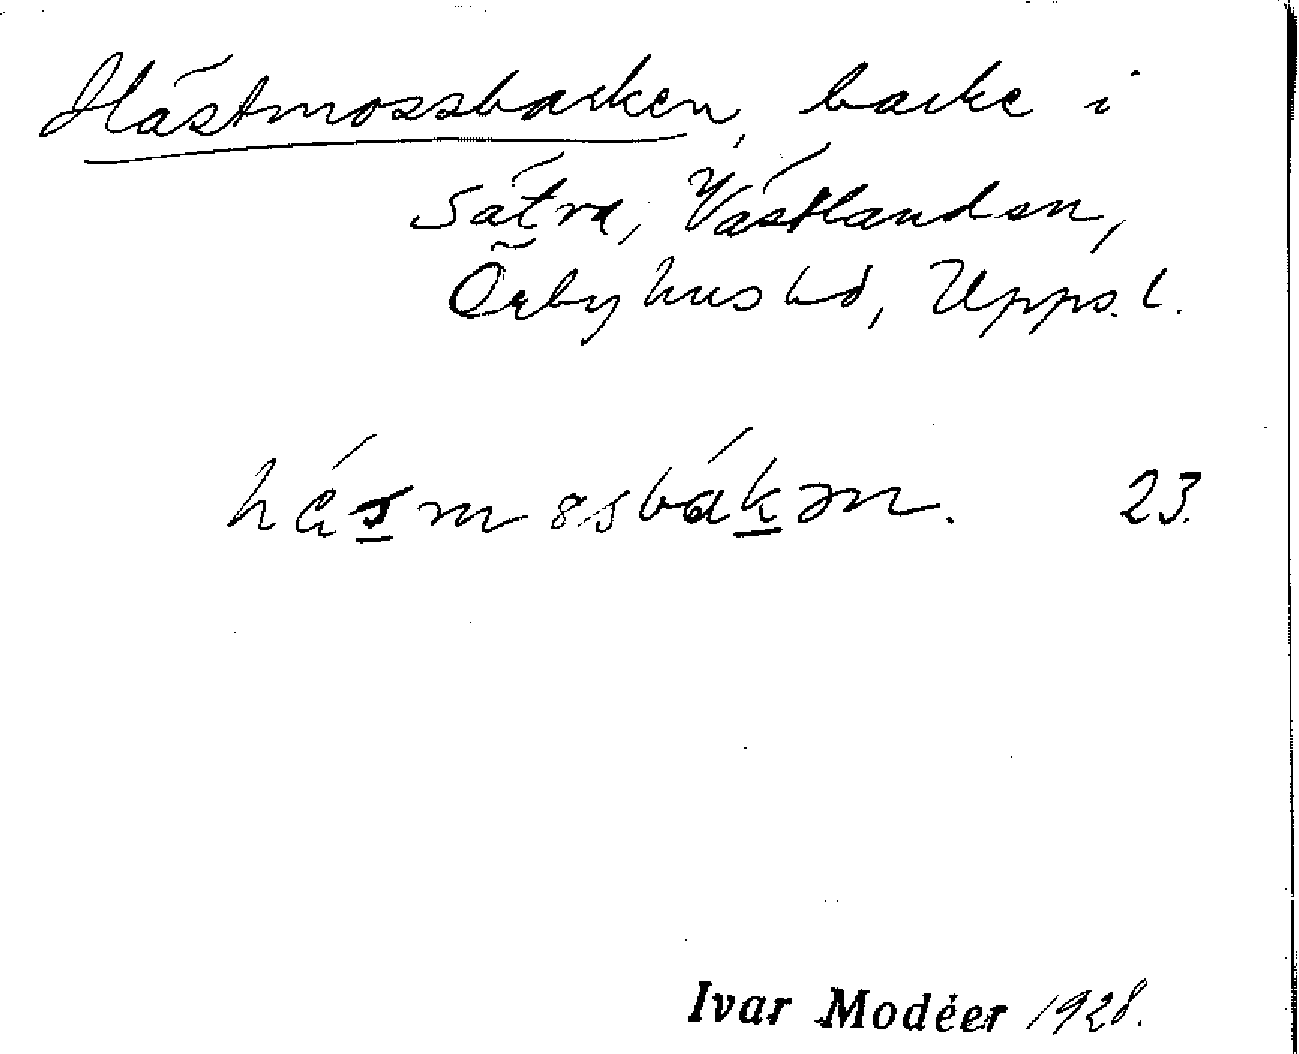 Hästmossbacken, backe i
Sätra, Västlanden,
Örbyhus hd, Upps. l.
23.
Ivar Modéer 1928.